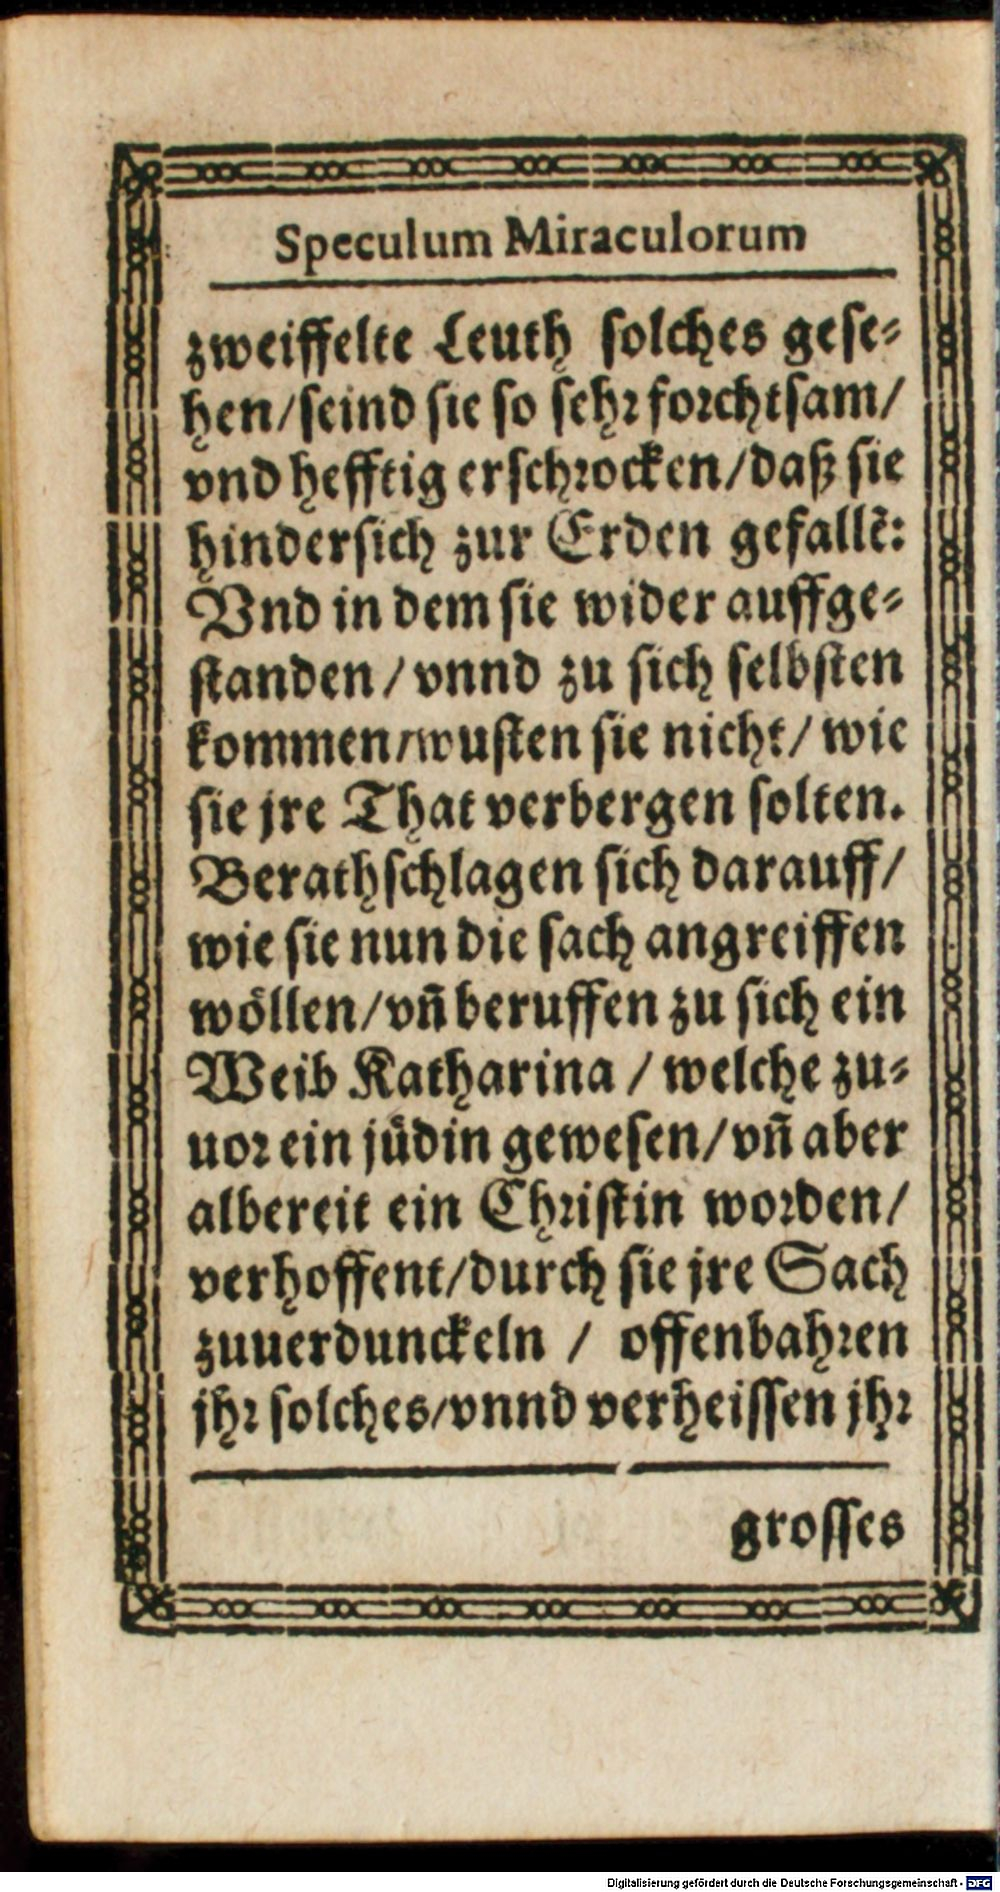 Speculum Miraculorum
zweiffelte Leuth solches gese-
hen/seind sie so sehr forchtsam/
vnd hefftig erschrocken/daß sie
hindersich zur Erden gefallẽ:
Vnd in dem sie wider auffge-
standen/vnnd zu sich selbsten
kommen/wusten sie nicht/wie
sie jre That verbergen solten.
Berathschlagen sich darauff/
wie sie nun die sach angreiffen
wöllen/vñ beruffen zu sich ein
Weib Katharina/welche zu-
uor ein jüdin gewesen/vñ aber
albereit ein Christin worden/
verhoffent/durch sie jre Sach
zuuerdunckeln/offenbahren
jhr solches/vnnd verheissen jhr
grosses
Digitalisierung gefördert durch die Deutsche Forschungsgemeinschaft - DFG